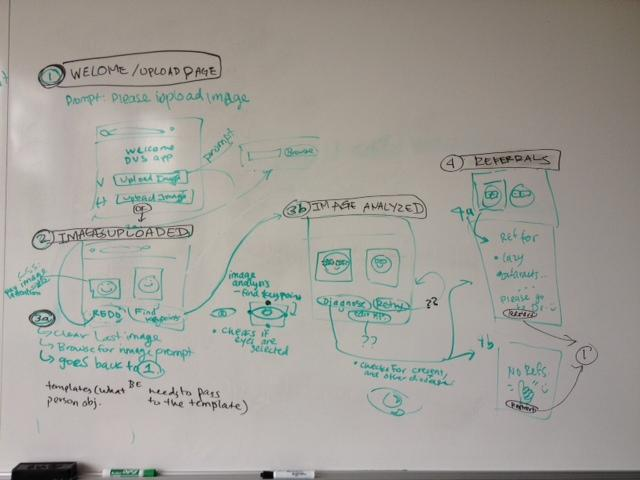 1 WELOME/UPLOAD PAGE
Prompt: Please upload image
WELCOME
DVS app
V Upload Image
H Upload Image
OR
prompt
Browse
2 IMAGES UPLOADED
REDO Find
keypoints
3a
clear last image
Browse for image prompt
goes back to 1
templates (what BE needs to pass
person obj. to the template)
image
analysis
- find keypoints
• checks if
eyes are
selected
3b IMAGE ANALYZED
Diagnose Retry
??
??
• checks for crescent,
and other disease
4 REFERRALS
4a
Ref for
• lazy
cataracts...
Please go
to Dr.
Restart
4b
NO Refs
Restart
1